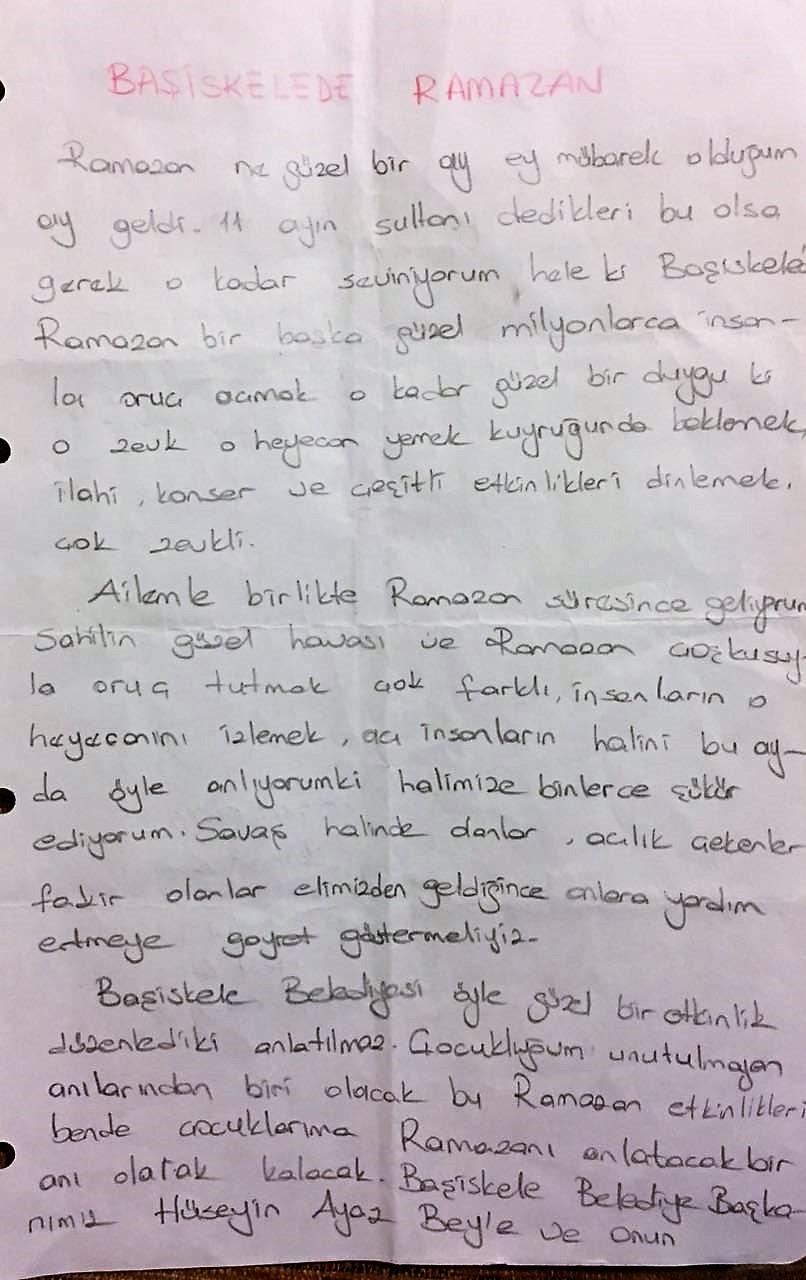 BAŞİSKELEDE RAMAZAN
Ramazan ne güzel bir ay ey mübarek olduğum
ay geldi. 11 ayın sultanı dedikleri bu olsa
gerek o kadar seviniyorum hele ki Başiskele
Ramazan bir başka güzel milyonlarca insan-
la oruç açmak o kadar güzel bir duygu ki
o zevk o heyecan yemek kuyruğunda beklemek,
ilahi, konser ve çeşitli etkinlikleri dinlemek.
çok zevkli.
Ailemle birlikte Ramazan süresince geliyorum
Sahilin güzel havası ve Ramazan coşkusuy-
la oruç tutmak çok farklı, insanların o
heyecanını izlemek, aç insanların halini bu ay-
da öyle anlıyorumki halimize binlerce şükür
ediyorum. Savaş halinde olanlar, açlık çekenler
fakir olanlar elimizden geldiğince onlara yardım
etmeye gayret göstermeliyiz.
Başiskele Belediyesi öyle güzel bir etkinlik
düzenlediki anlatılmaz. Çocukluğum unutulmayan
anılarından biri olacak bu Ramazan etkinlikleri
bende çocuklarıma Ramazanı anlatacak bir
anı olarak kalacak. Başiskele Belediye Başka-
nımız Hüseyin Ayaz Bey'le ve onun